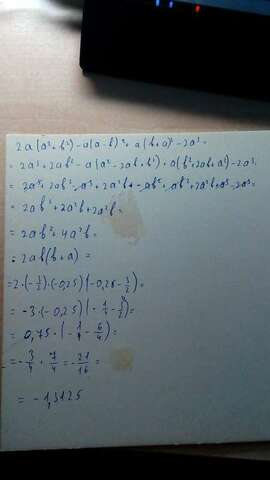 2a(a²+b²)-a(a-b)²+a(b+a)²-2a³=
=2a³+2ab²-a(a²-2ab+b²)+a(b²+2ab+a²)-2a³=
=2a³+2ab²-a³+2a²b-ab²+ab²+2a²b+a³-2a³=
=2ab²+2a²b+2a²b=
=2ab²+4a²b=
=2ab(b+a)=
=2·(-½)·(-0,25)(-0,25-½)=
=-3·(-0,25)(-¼-½)=
=0,75·(-¼-6/4)=
=-¾·7/4=-21/16=
=-1,3125